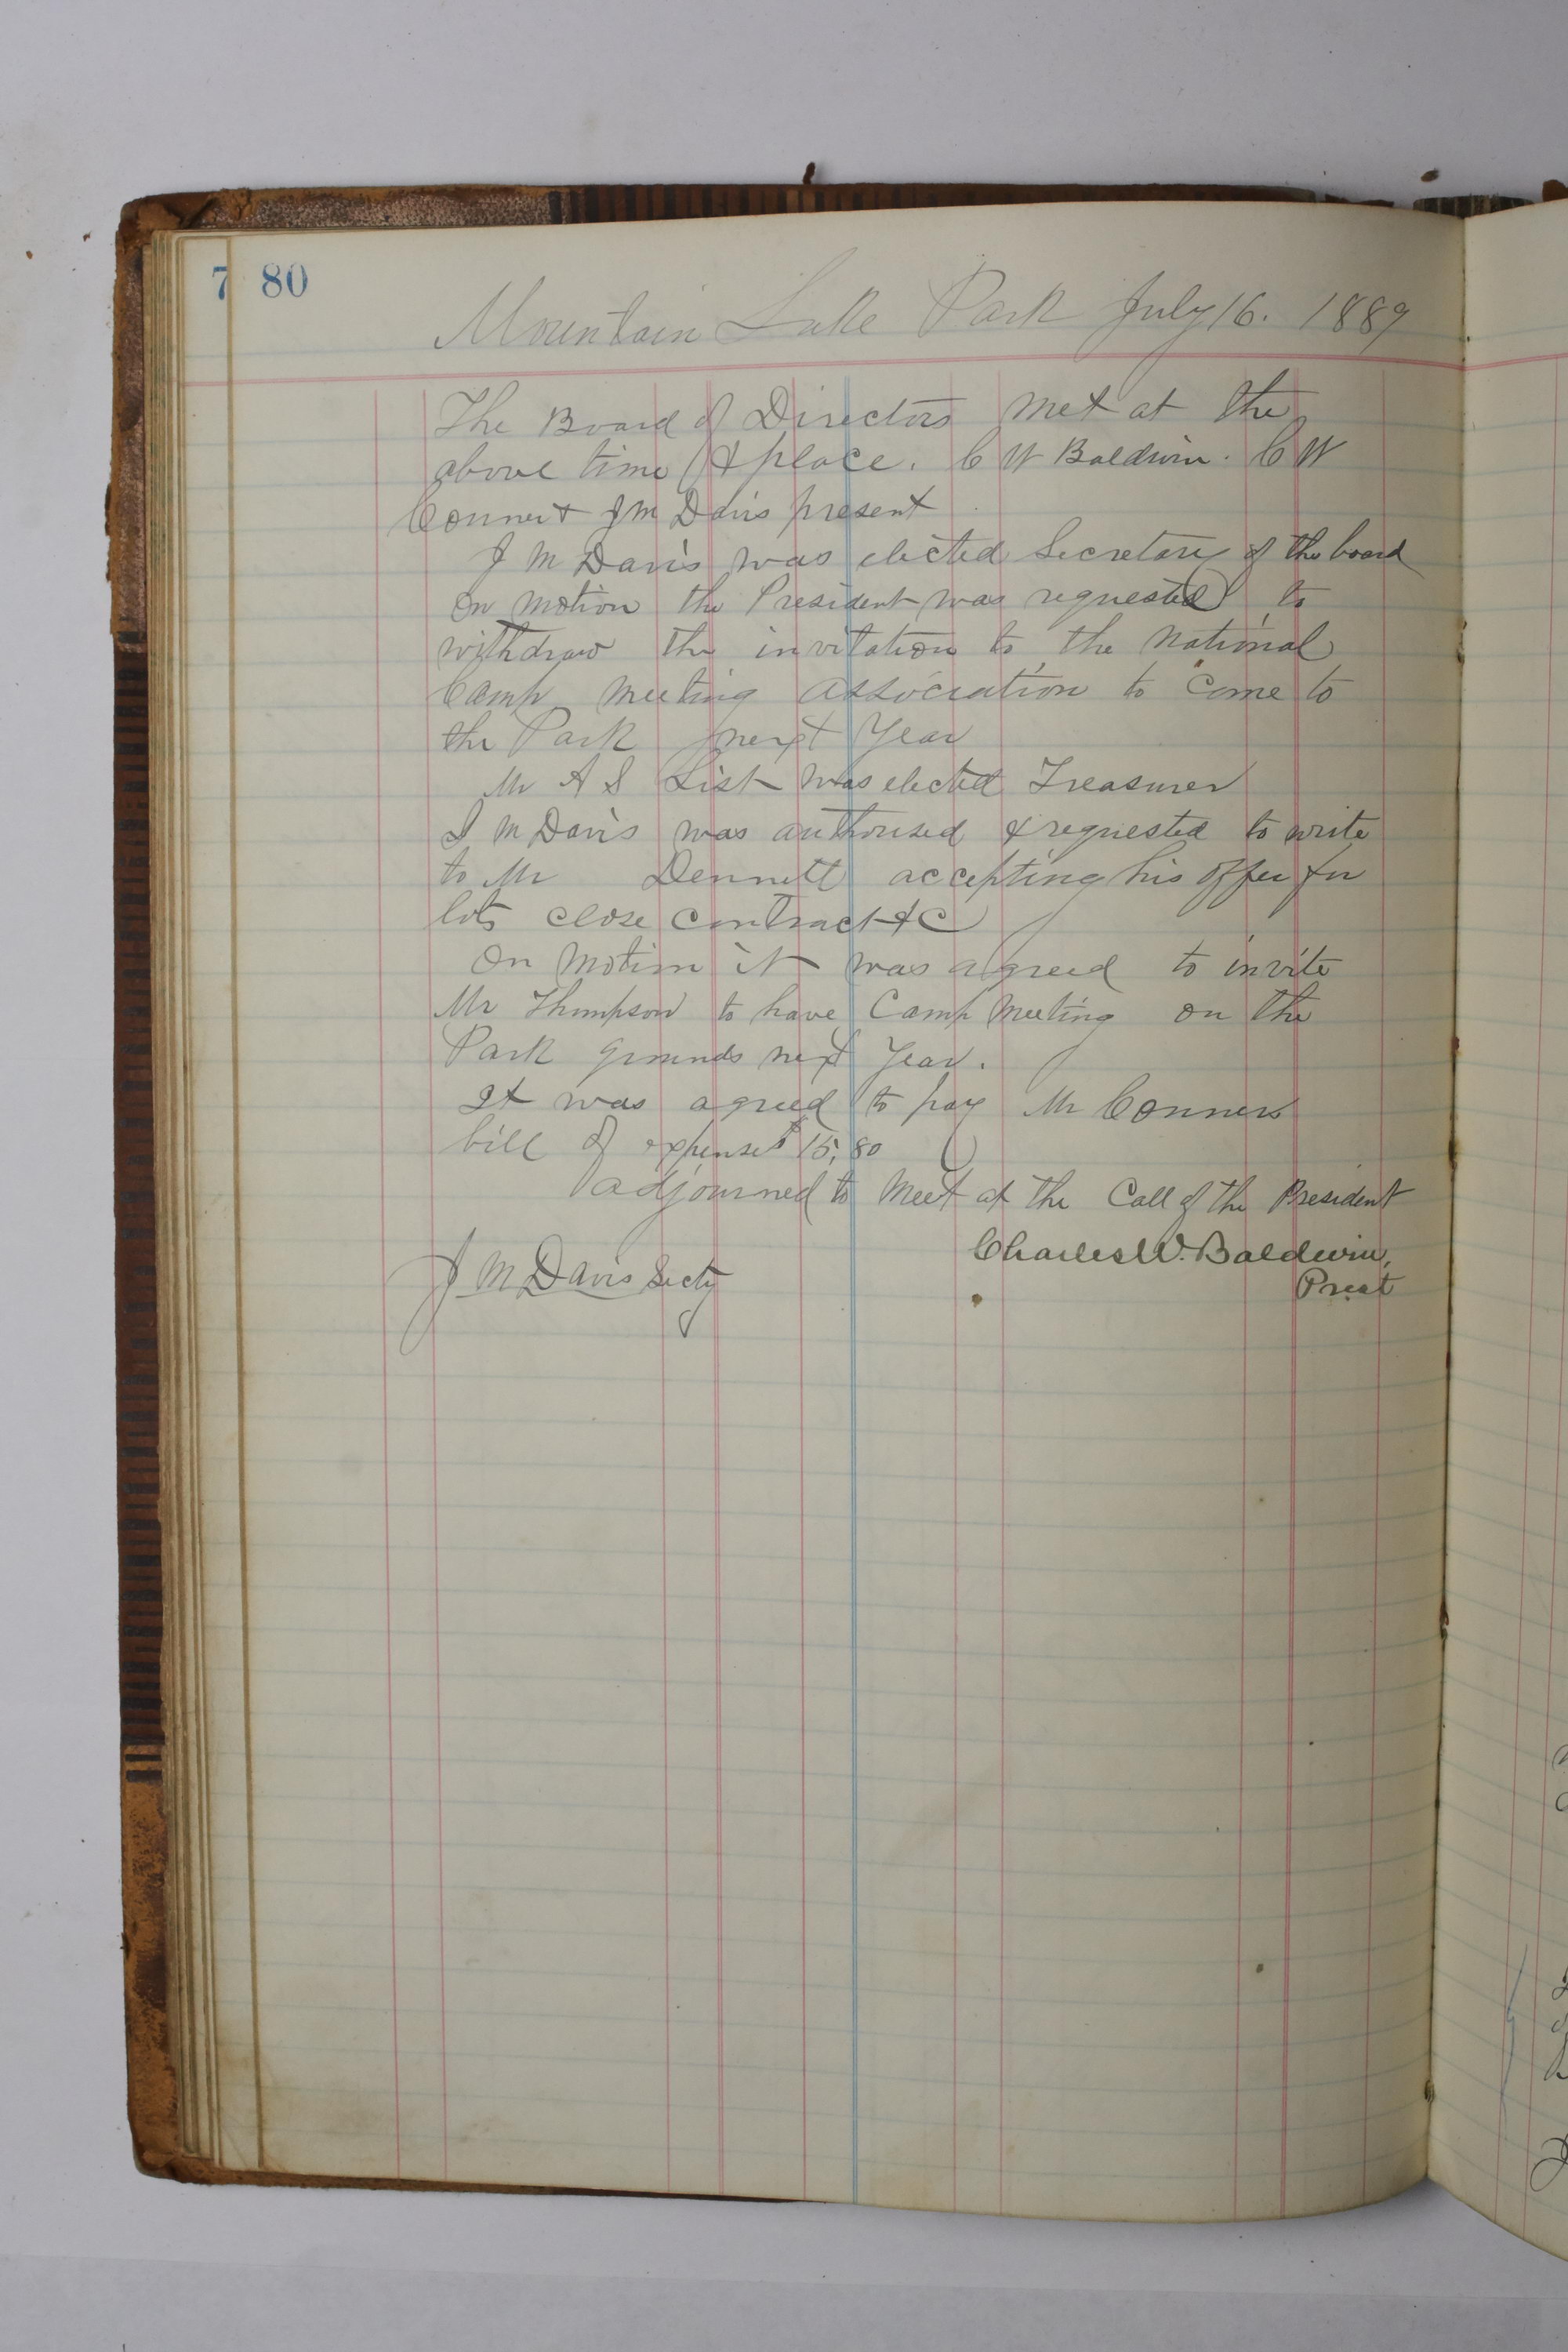 7 80
Mountain Lake Park July 16. 1889
The Board of Directors met at the
above time & place. C W Baldwin. C W
Conner & J M Davis present
J M Davis was elected Secretary of the board
on motion the President was requested to
withdraw the invitation to the National
Camp meeting association to come to
the Park next Year
Mr A S List was elected Treasurer
J M Davis was authorised & requested to write
to Mr Dennett accepting his offer for
lots close contract &C
On motion it was agreed to invite
Mr Thompson to have Camp Meeting on the
Park grounds next Year.
It was agreed to pay Mr Conners
bill of expenses 15,80
adjourned to meet at the Call of the President
Charles W. Baldwin,
Prest
J M Davis Secty